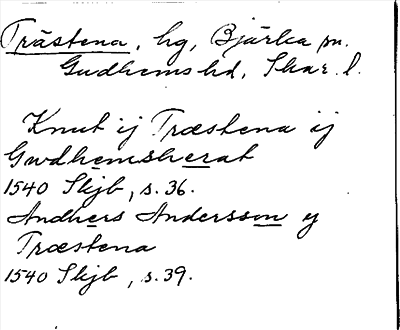 Trästena, hg, Bjärka sn.
Gudhems hd, Skar. l.
Knut ij Træstena ij
Gwdhemsherat
1540 Skjb, s. 36.
Andhers Andersson y
Træstena
1540 Skjb, s. 39.